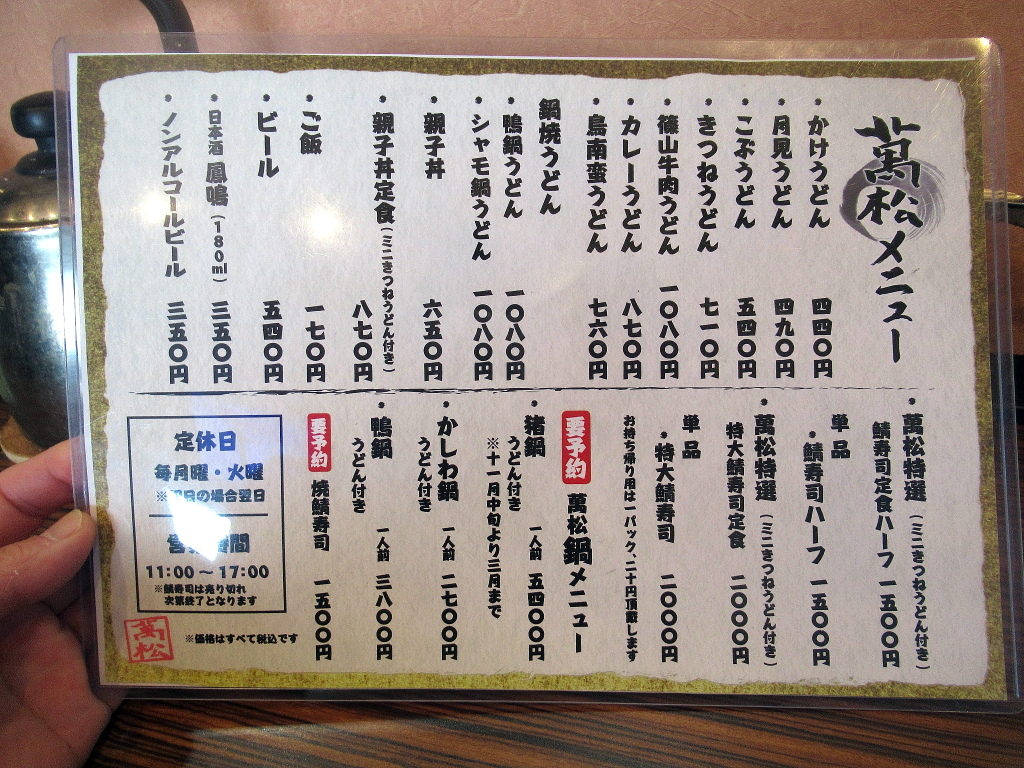 萬松メニュー
・かけうどん 四四〇円
・月見うどん 四九〇円
・こぶうどん 五四〇円
・きつねうどん 七一〇円
・篠山牛肉うどん 一〇八〇円
・カレーうどん 八七〇円
・鳥南蛮うどん 七六〇円
鍋焼うどん
・鴨鍋うどん 一〇八〇円
・シャモ鍋うどん 一〇八〇円
・親子丼 六五〇円
・親子丼定食（ミニきつねうどん付き）
八七〇円
・ご飯 一七〇円
・ビール 五四〇円
・日本酒 鳳鳴（180ml） 三五〇円
・ノンアルコールビール 三五〇円
・萬松特選（ミニきつねうどん付き）
鯖寿司定食ハーフ 一五〇〇円
単品
・鯖寿司ハーフ 一五〇〇円
・萬松特選（ミニきつねうどん付き）
特大鯖寿司定食 二〇〇〇円
単品
・特大鯖寿司 二〇〇〇円
お持ち帰り用は一パック、二十円頂戴します
要予約 萬松鍋メニュー
・猪鍋
うどん付き 一人前 五四〇〇円
※十一月中旬より三月まで
・かしわ鍋 一人前 二七〇〇円
うどん付き
・鴨鍋 一人前 三八〇〇円
うどん付き
要予約 焼鯖寿司 一五〇〇円
定休日
毎月曜・火曜
の場合翌日
間
11:00〜17:00
※鯖寿司は売り切れ
次第終了となります
※価格はすべて税込です
萬松